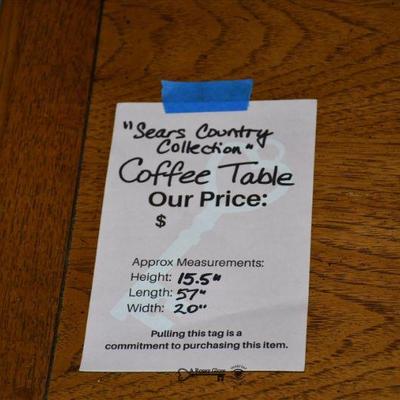 "Sears Country
Collection"
Coffee Table
Our Price:
$
Approx Measurements:
Height: 15.5"
Length: 57"
Width: 20"
Pulling this tag is a
commitment to purchasing this item.